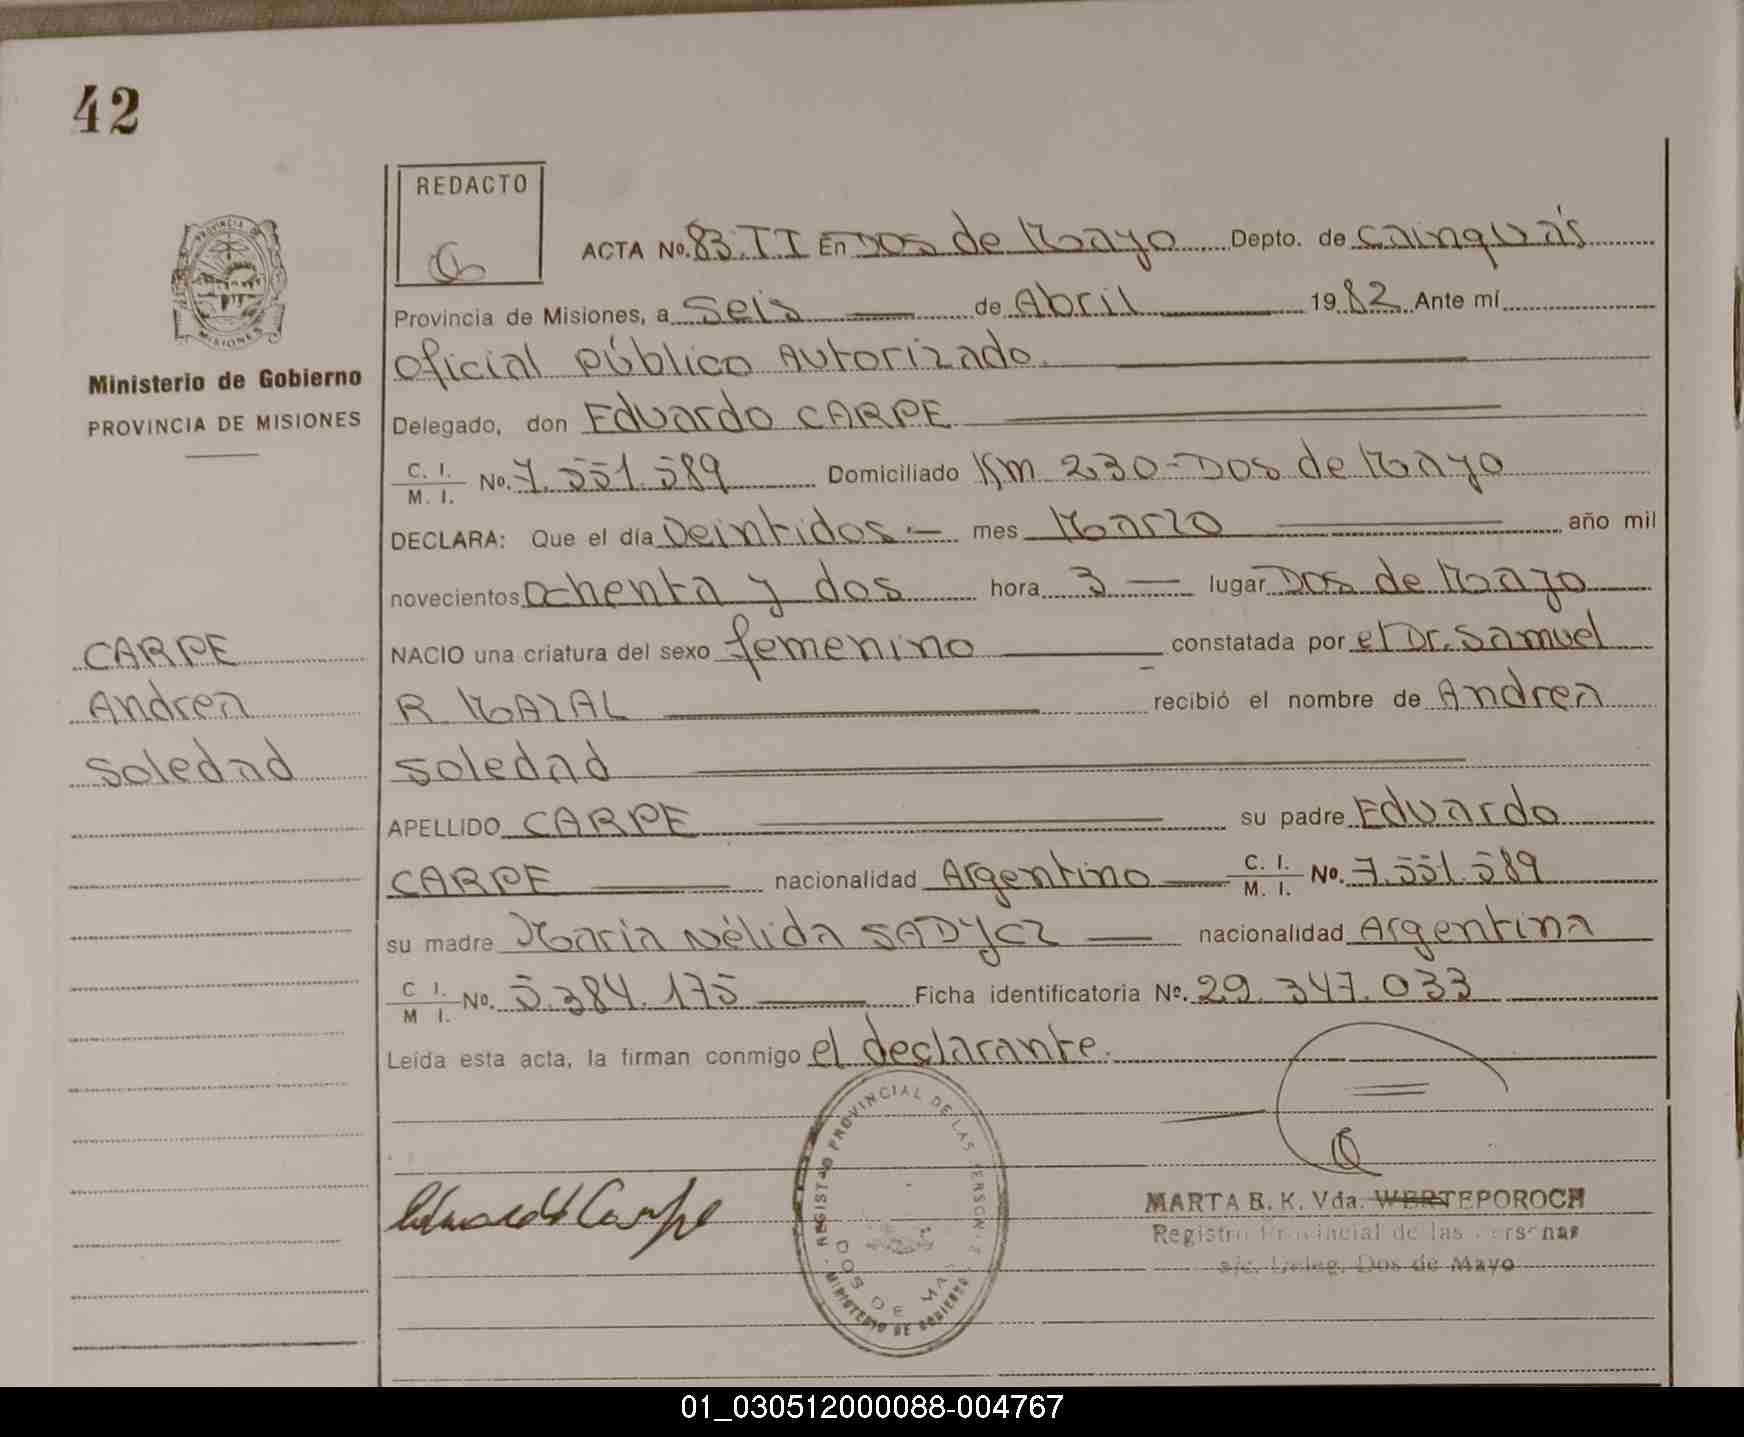 42
REDACTO
PROVINCIA DE
MISIONES
ACTA No. 83. II En Dos de Mayo Depto. de Cainguás
Provincia de Misiones, a Seis de Abril 1982 Ante mí
Oficial Público Autorizado.
Ministerio de Gobierno
PROVINCIA DE MISIONES
Delegado, don Eduardo CARPE
C. I. / M. I. No. 7.551.589 Domiciliado Km 230-Dos de Mayo
DECLARA: Que el día Veintidos.- mes Marzo año mil
novecientos ochenta y dos hora 3 lugar Dos de Mayo
CARPE
NACIO una criatura del sexo femenino constatada por el Dr. Samuel
Andrea
R. MAZAL recibió el nombre de Andrea
Soledad
Soledad
APELLIDO CARPE su padre Eduardo
CARPE nacionalidad Argentino C. I. / M. I. No. 7.551.589
su madre María Nélida SADYCZ nacionalidad Argentina
C I. / M I. No. 5.384.175 Ficha identificatoria No. 29.347.033
Leída esta acta, la firman conmigo el declarante.
Eduardo Carpe
REGISTRO PROVINCIAL DE LAS PERSONAS
DOS DE MAYO
MINISTERIO DE GOBIERNO
MARTA B. K. Vda. WERTEPOROCH
Registro Provincial de las Personas
a/c. Deleg. Dos de Mayo
01_030512000088-004767